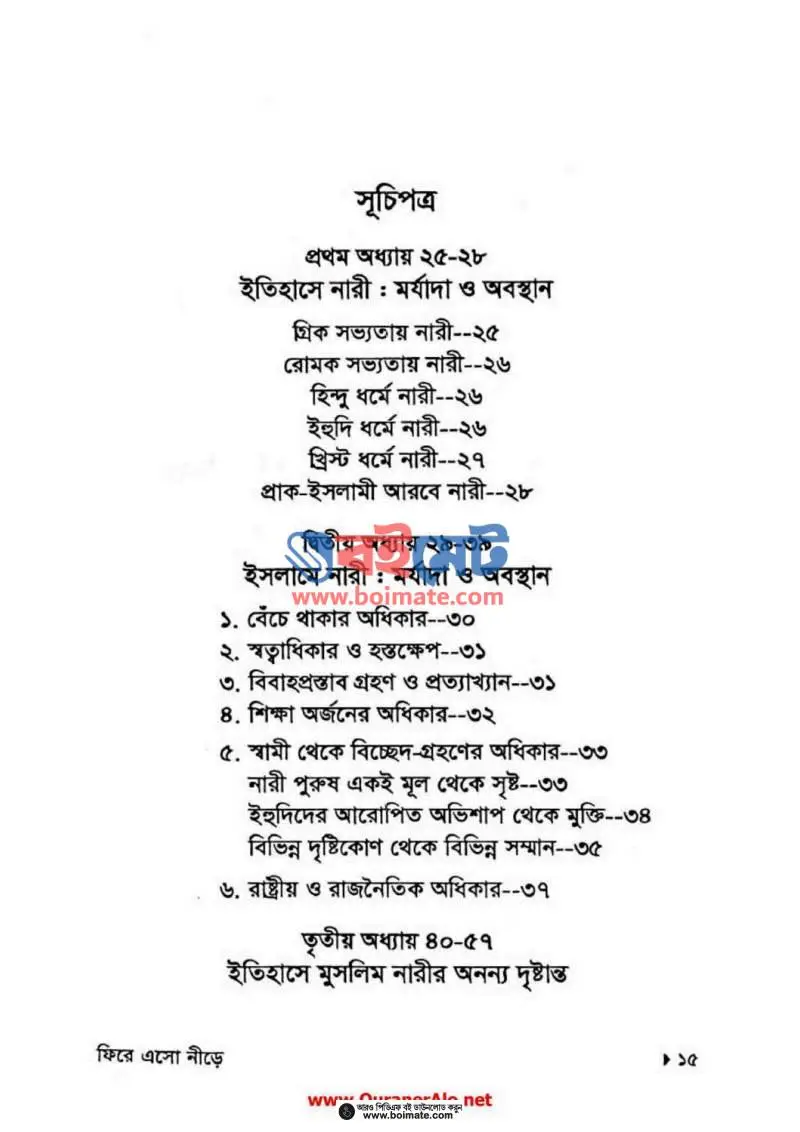 সূচিপত্র
প্রথম অধ্যায় ২৫-২৮
ইতিহাসে নারী : মর্যাদা ও অবস্থান
গ্রিক সভ্যতায় নারী--২৫
রোমক সভ্যতায় নারী--২৬
হিন্দু ধর্মে নারী--২৬
ইহুদি ধর্মে নারী--২৬
খ্রিস্ট ধর্মে নারী--২৭
প্রাক-ইসলামী আরবে নারী--২৮
বইমেট
দ্বিতীয় অধ্যায় ২৯-৩৯
ইসলামে নারী : মর্যাদা ও অবস্থান
www.boimate.com
১. বেঁচে থাকার অধিকার--৩০
২. স্বত্বাধিকার ও হস্তক্ষেপ--৩১
৩. বিবাহপ্রস্তাব গ্রহণ ও প্রত্যাখ্যান--৩১
৪. শিক্ষা অর্জনের অধিকার--৩২
৫. স্বামী থেকে বিচ্ছেদ-গ্রহণের অধিকার--৩৩
নারী পুরুষ একই মূল থেকে সৃষ্ট--৩৩
ইহুদিদের আরোপিত অভিশাপ থেকে মুক্তি--৩৪
বিভিন্ন দৃষ্টিকোণ থেকে বিভিন্ন সম্মান--৩৫
৬. রাষ্ট্রীয় ও রাজনৈতিক অধিকার--৩৭
তৃতীয় অধ্যায় ৪০-৫৭
ইতিহাসে মুসলিম নারীর অনন্য দৃষ্টান্ত
ফিরে এসো নীড়ে
১৫
www.QuranerAlo.net
আরও পিডিএফ বই ডাউনলোড করুন
www.boimate.com